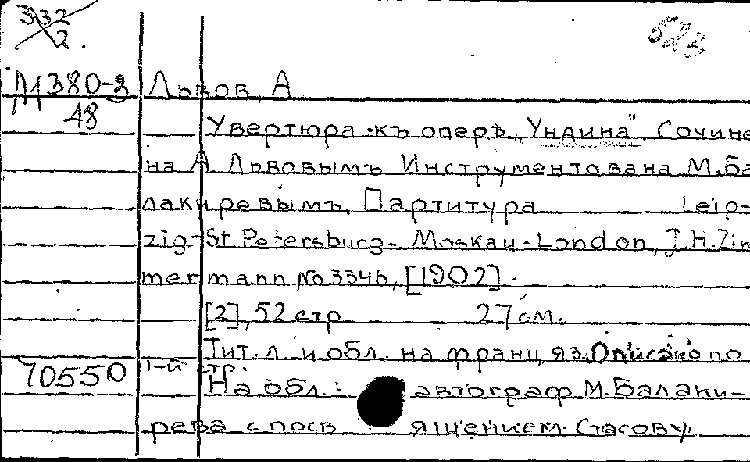 332
2.
523
М 380-3 Львов, А
48
Увертюра къ оперѣ „Ундина" Сочине
на А. Львовымъ Инструментована М. Ба
лакиревымъ. Партитура Leip-
zig-St Petersburg-Moskau-London, J.H. Zim
mermann No 3346, [1902].
[2], 52 стр 27 см.
Тит. л. и обл. на франц. яз. Описано по
70550 1-й
На обл.: автограф М. Балаки-
рева с посв ящением Стасову.